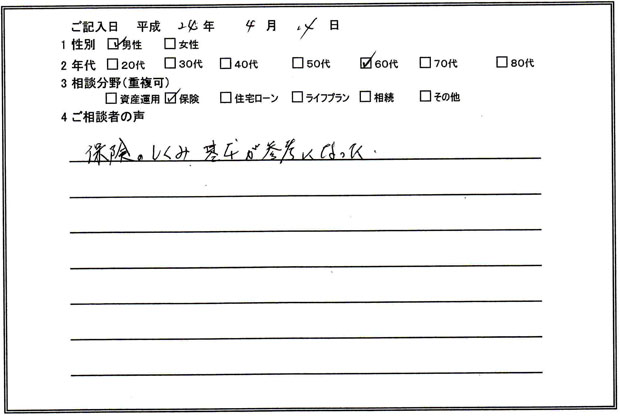 ご記入日 平成 24 年 4 月 24 日
1 性別 ☑男性 □女性
2 年代 □20代 □30代 □40代 □50代 ☑60代 □70代 □80代
3 相談分野(重複可)
□資産運用 ☑保険 □住宅ローン □ライフプラン □相続 □その他
4 ご相談者の声
保険のしくみ 基本が参考になった.